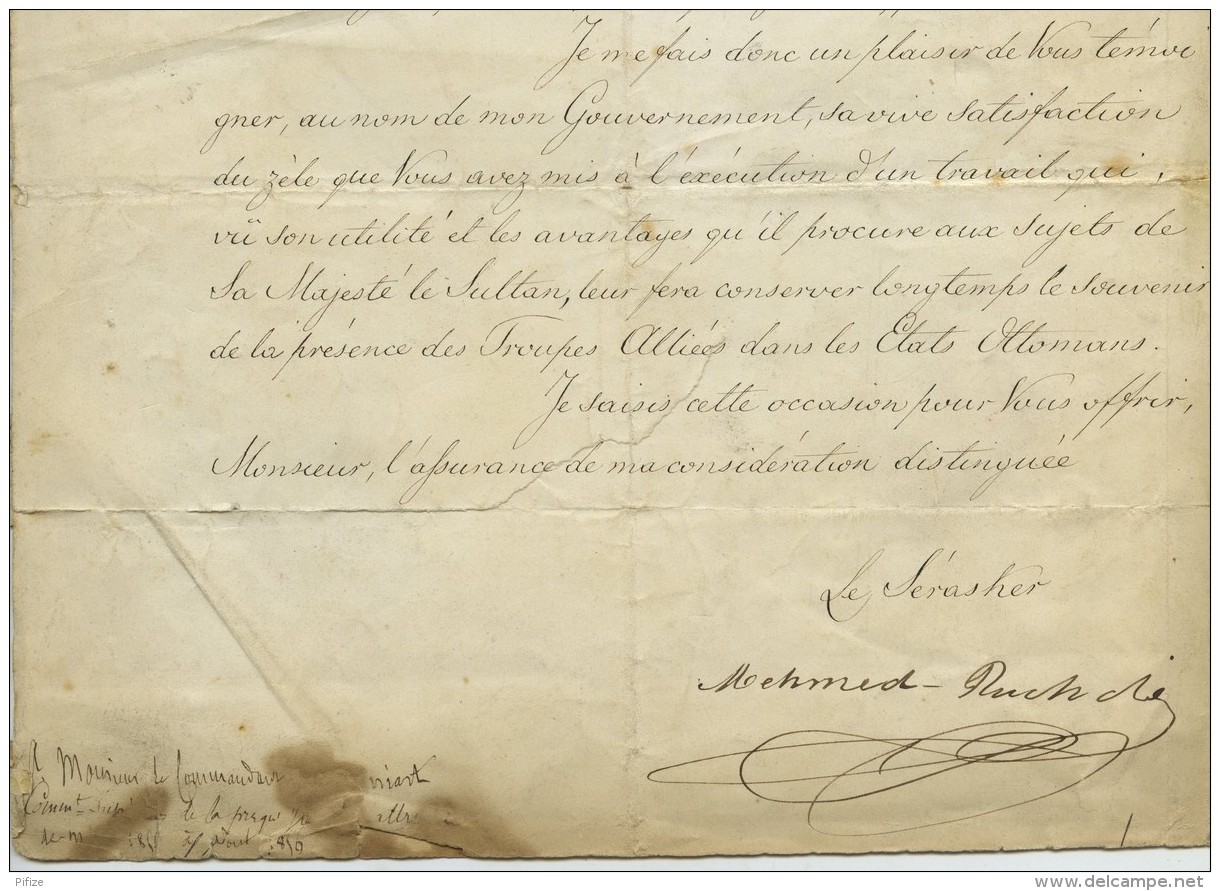 Je me fais donc un plaisir de Vous témoi
gner, au nom de mon Gouvernement, sa vive satisfaction
du zèle que Vous avez mis à l'exécution d'un travail qui,
vü son utilité et les avantages qu'il procure aux sujets de
Sa Majesté le Sultan, leur fera conserver longtemps le souvenir
de la présence des Troupes Alliées dans les Etats Ottomans.
Je saisis cette occasion pour Vous offrir,
Monsieur, l'assurance de ma considération distinguée
Le Sérasker
Mehmed - Ruchdi
A Monsieur le Commandant
de la
août
Pifize
www.delcampe.net